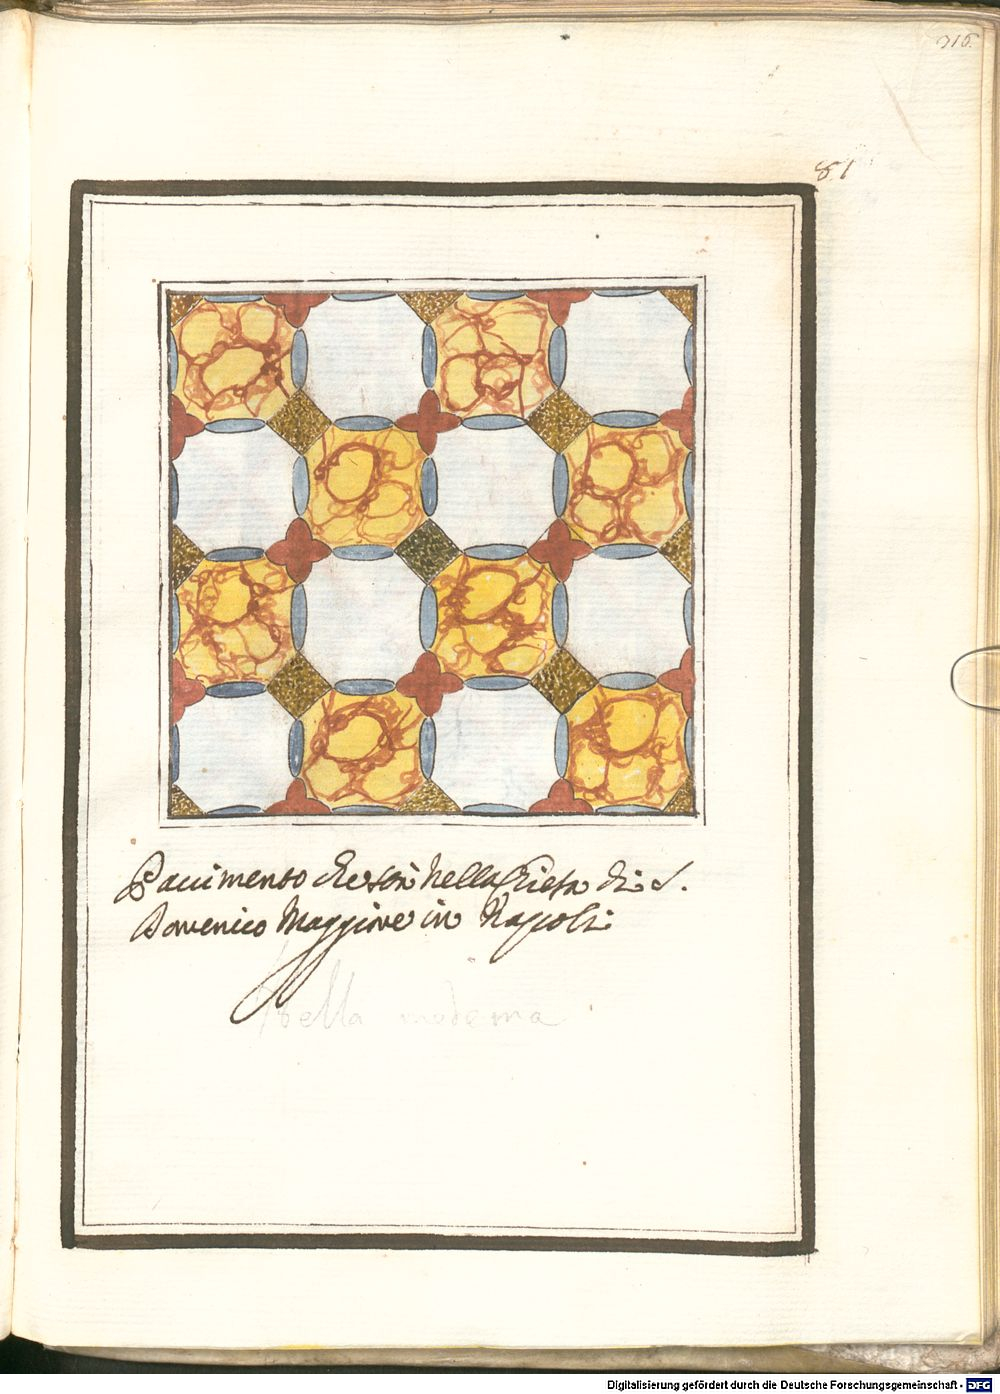 316.
81
Pauimento che stà nella Chiesa di S.
Domenico Maggiore in Napoli
bella moderna
Digitalisierung gefördert durch die Deutsche Forschungsgemeinschaft - DFG